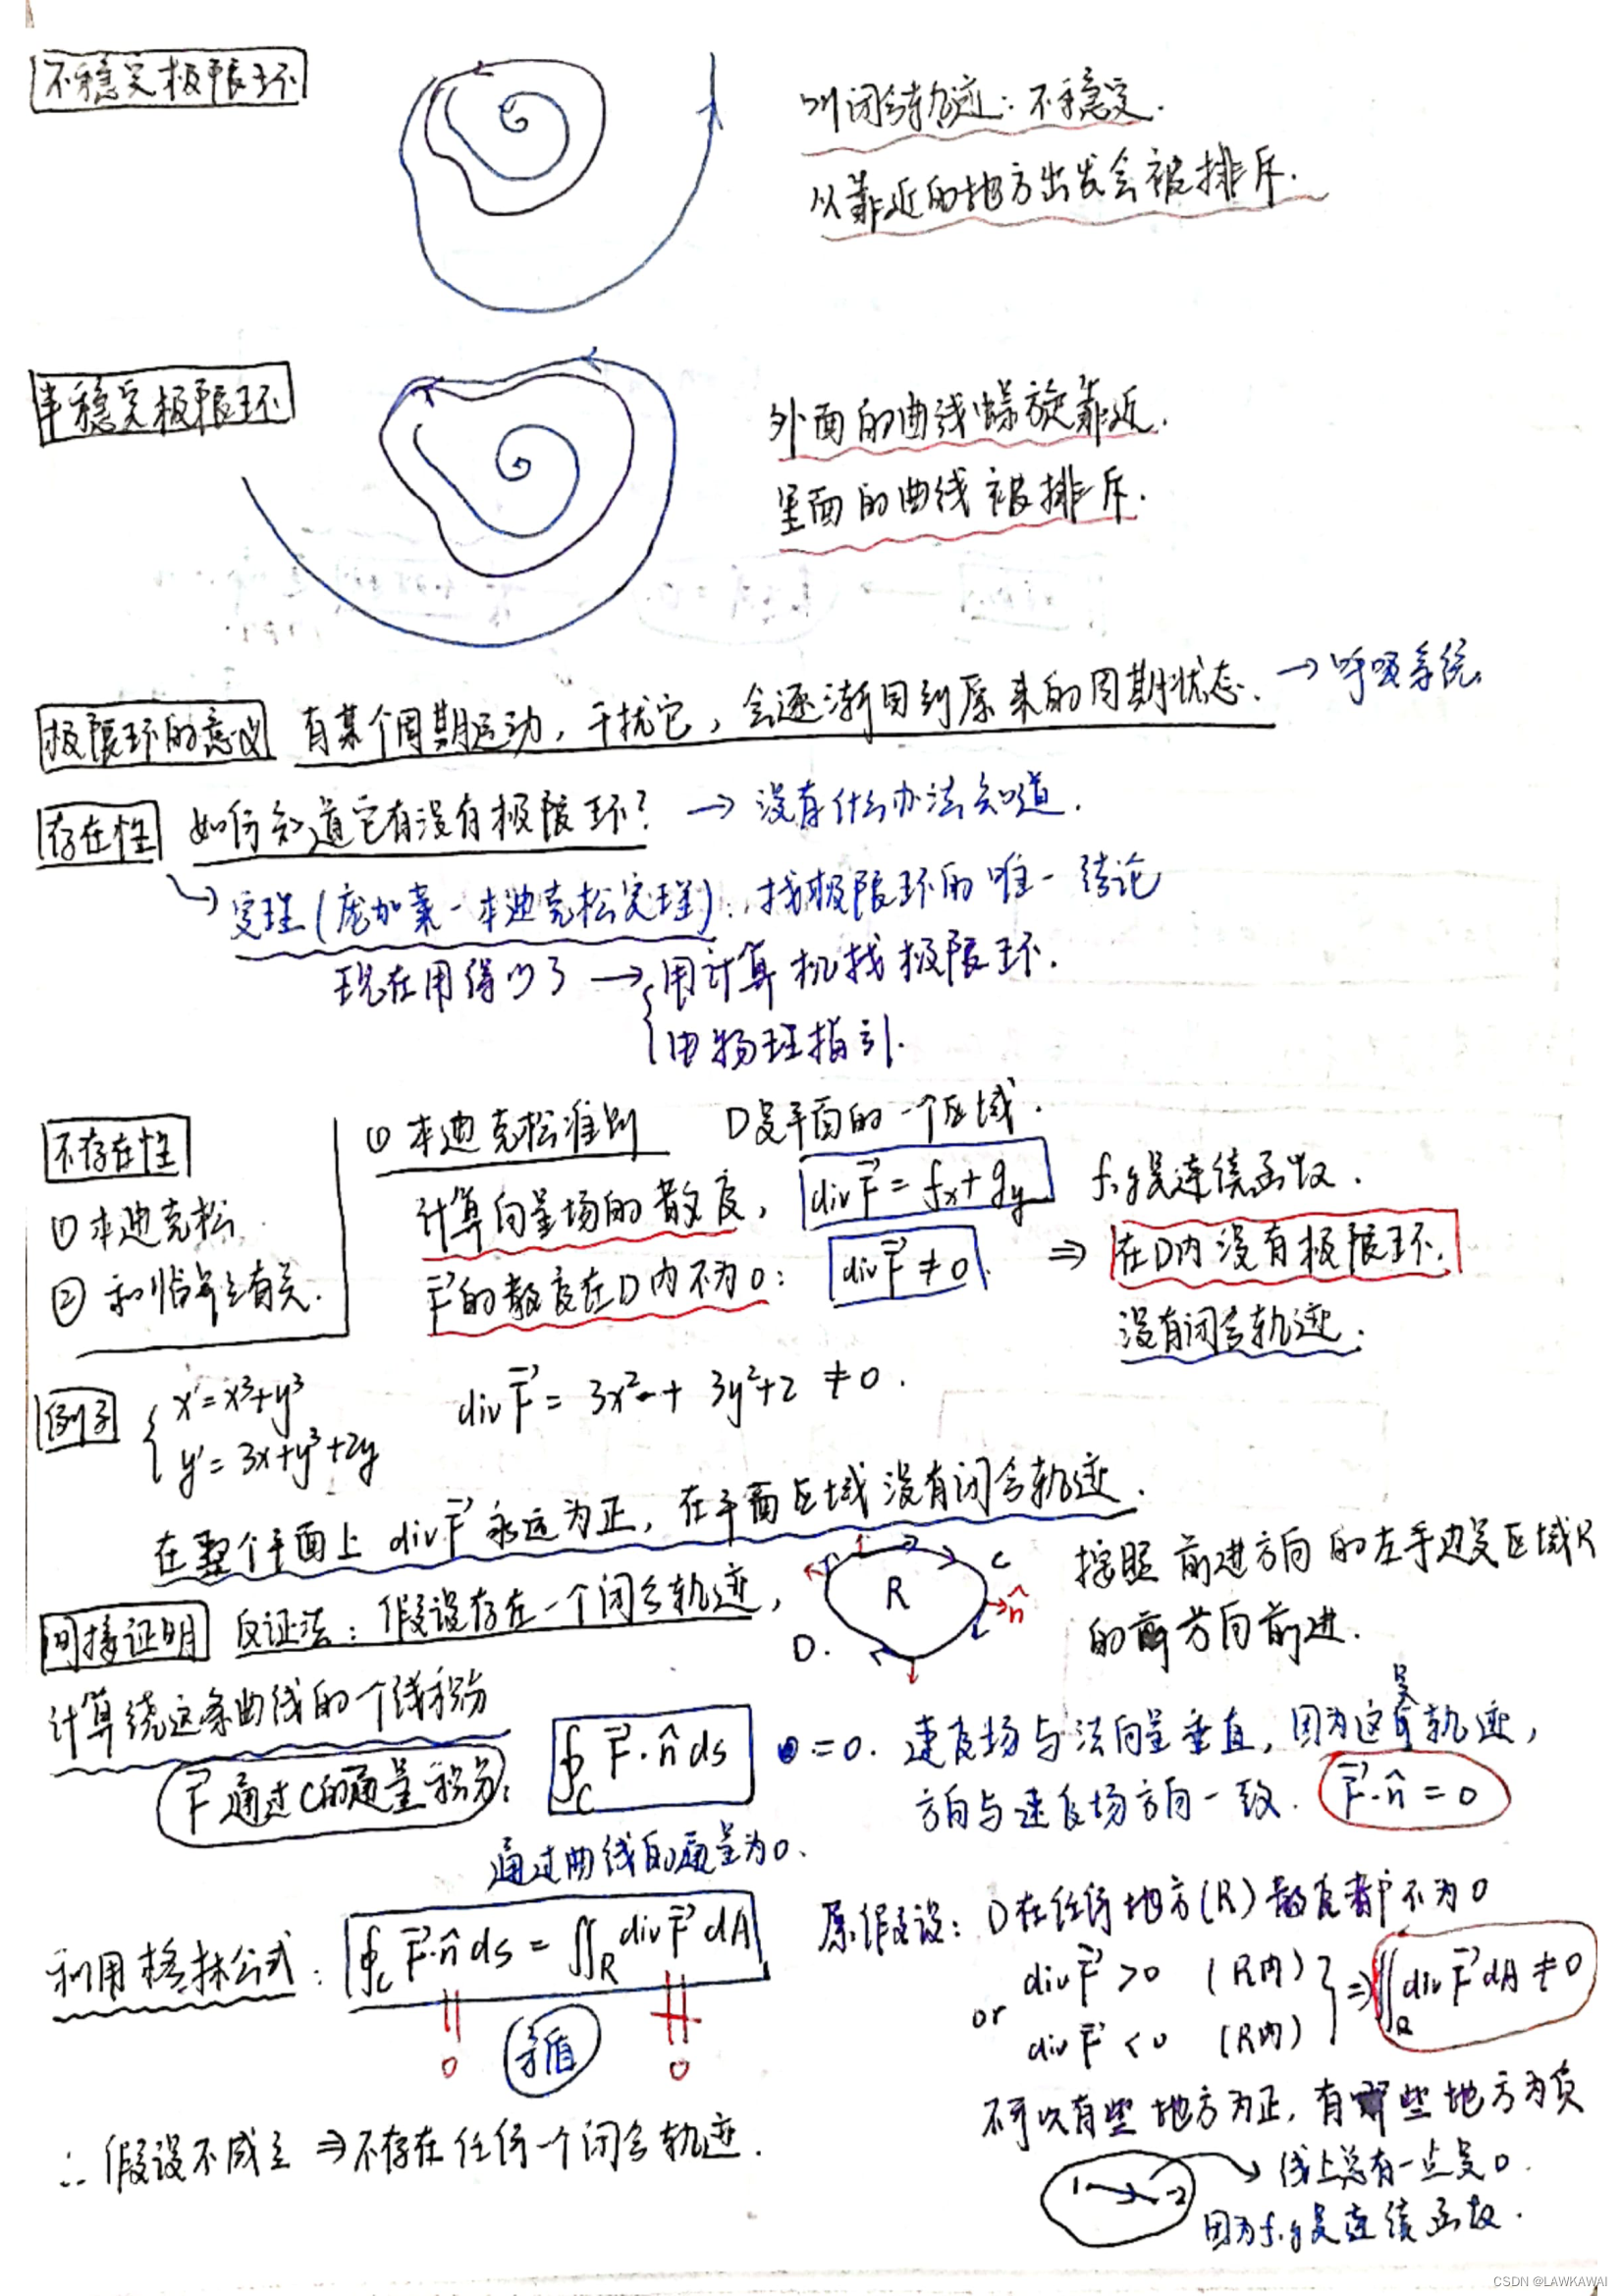 不稳定极限环
叫闭合轨迹：不稳定.
从靠近的地方出发会被排斥.
半稳定极限环
外面的曲线螺旋靠近.
里面的曲线被排斥.
极限环的意义 有某个周期运动，干扰它，会逐渐回到原来的周期状态. → 呼吸系统
存在性 如何知道它有没有极限环？ → 没有什么办法知道.
定理(庞加莱-本迪克松定理)：找极限环的唯一结论
现在用得少了 → { 用计算机找极限环.
由物理指引.
不存在性
① 本迪克松
② 和临界点有关.
① 本迪克松准则 D是平面的一个区域.
计算向量场的散度， div F⃗ = fx + gy f, g是连续函数.
F⃗的散度在D内不为0： div F⃗ ≠ 0 ⇒ 在D内没有极限环.
没有闭合轨迹.
例子 { x' = x³+y³
y' = 3x+y³+2y
div F⃗ = 3x² + 3y²+2 ≠ 0.
在整个平面上 div F⃗ 永远为正，在平面区域没有闭合轨迹.
间接证明 反证法：假设存在一个闭合轨迹，
R C n̂ D.
按照前进方向的左手边是区域R
的方向前进.
计算绕这条曲线的一个线积分
F⃗ 通过C的通量积分： ∮C F⃗·n̂ ds = 0. 速度场与法向量垂直，因为这是轨迹，
方向与速度场方向一致. F⃗·n̂ = 0
通过曲线的通量为0.
利用格林公式： ∮C F⃗·n̂ ds = ∬R div F⃗ dA
0 矛盾 0
原假设：D在任何地方(R)散度都不为0
div F⃗ > 0 (R内)
or div F⃗ < 0 (R内) } ⇒ ∬R div F⃗ dA ≠ 0
不可以有些地方为正，有些地方为负
1 → -2 → 线上总有一点是0.
因为f, g是连续函数.
∴ 假设不成立 ⇒ 不存在任何一个闭合轨迹.
CSDN @LAWKAWAI